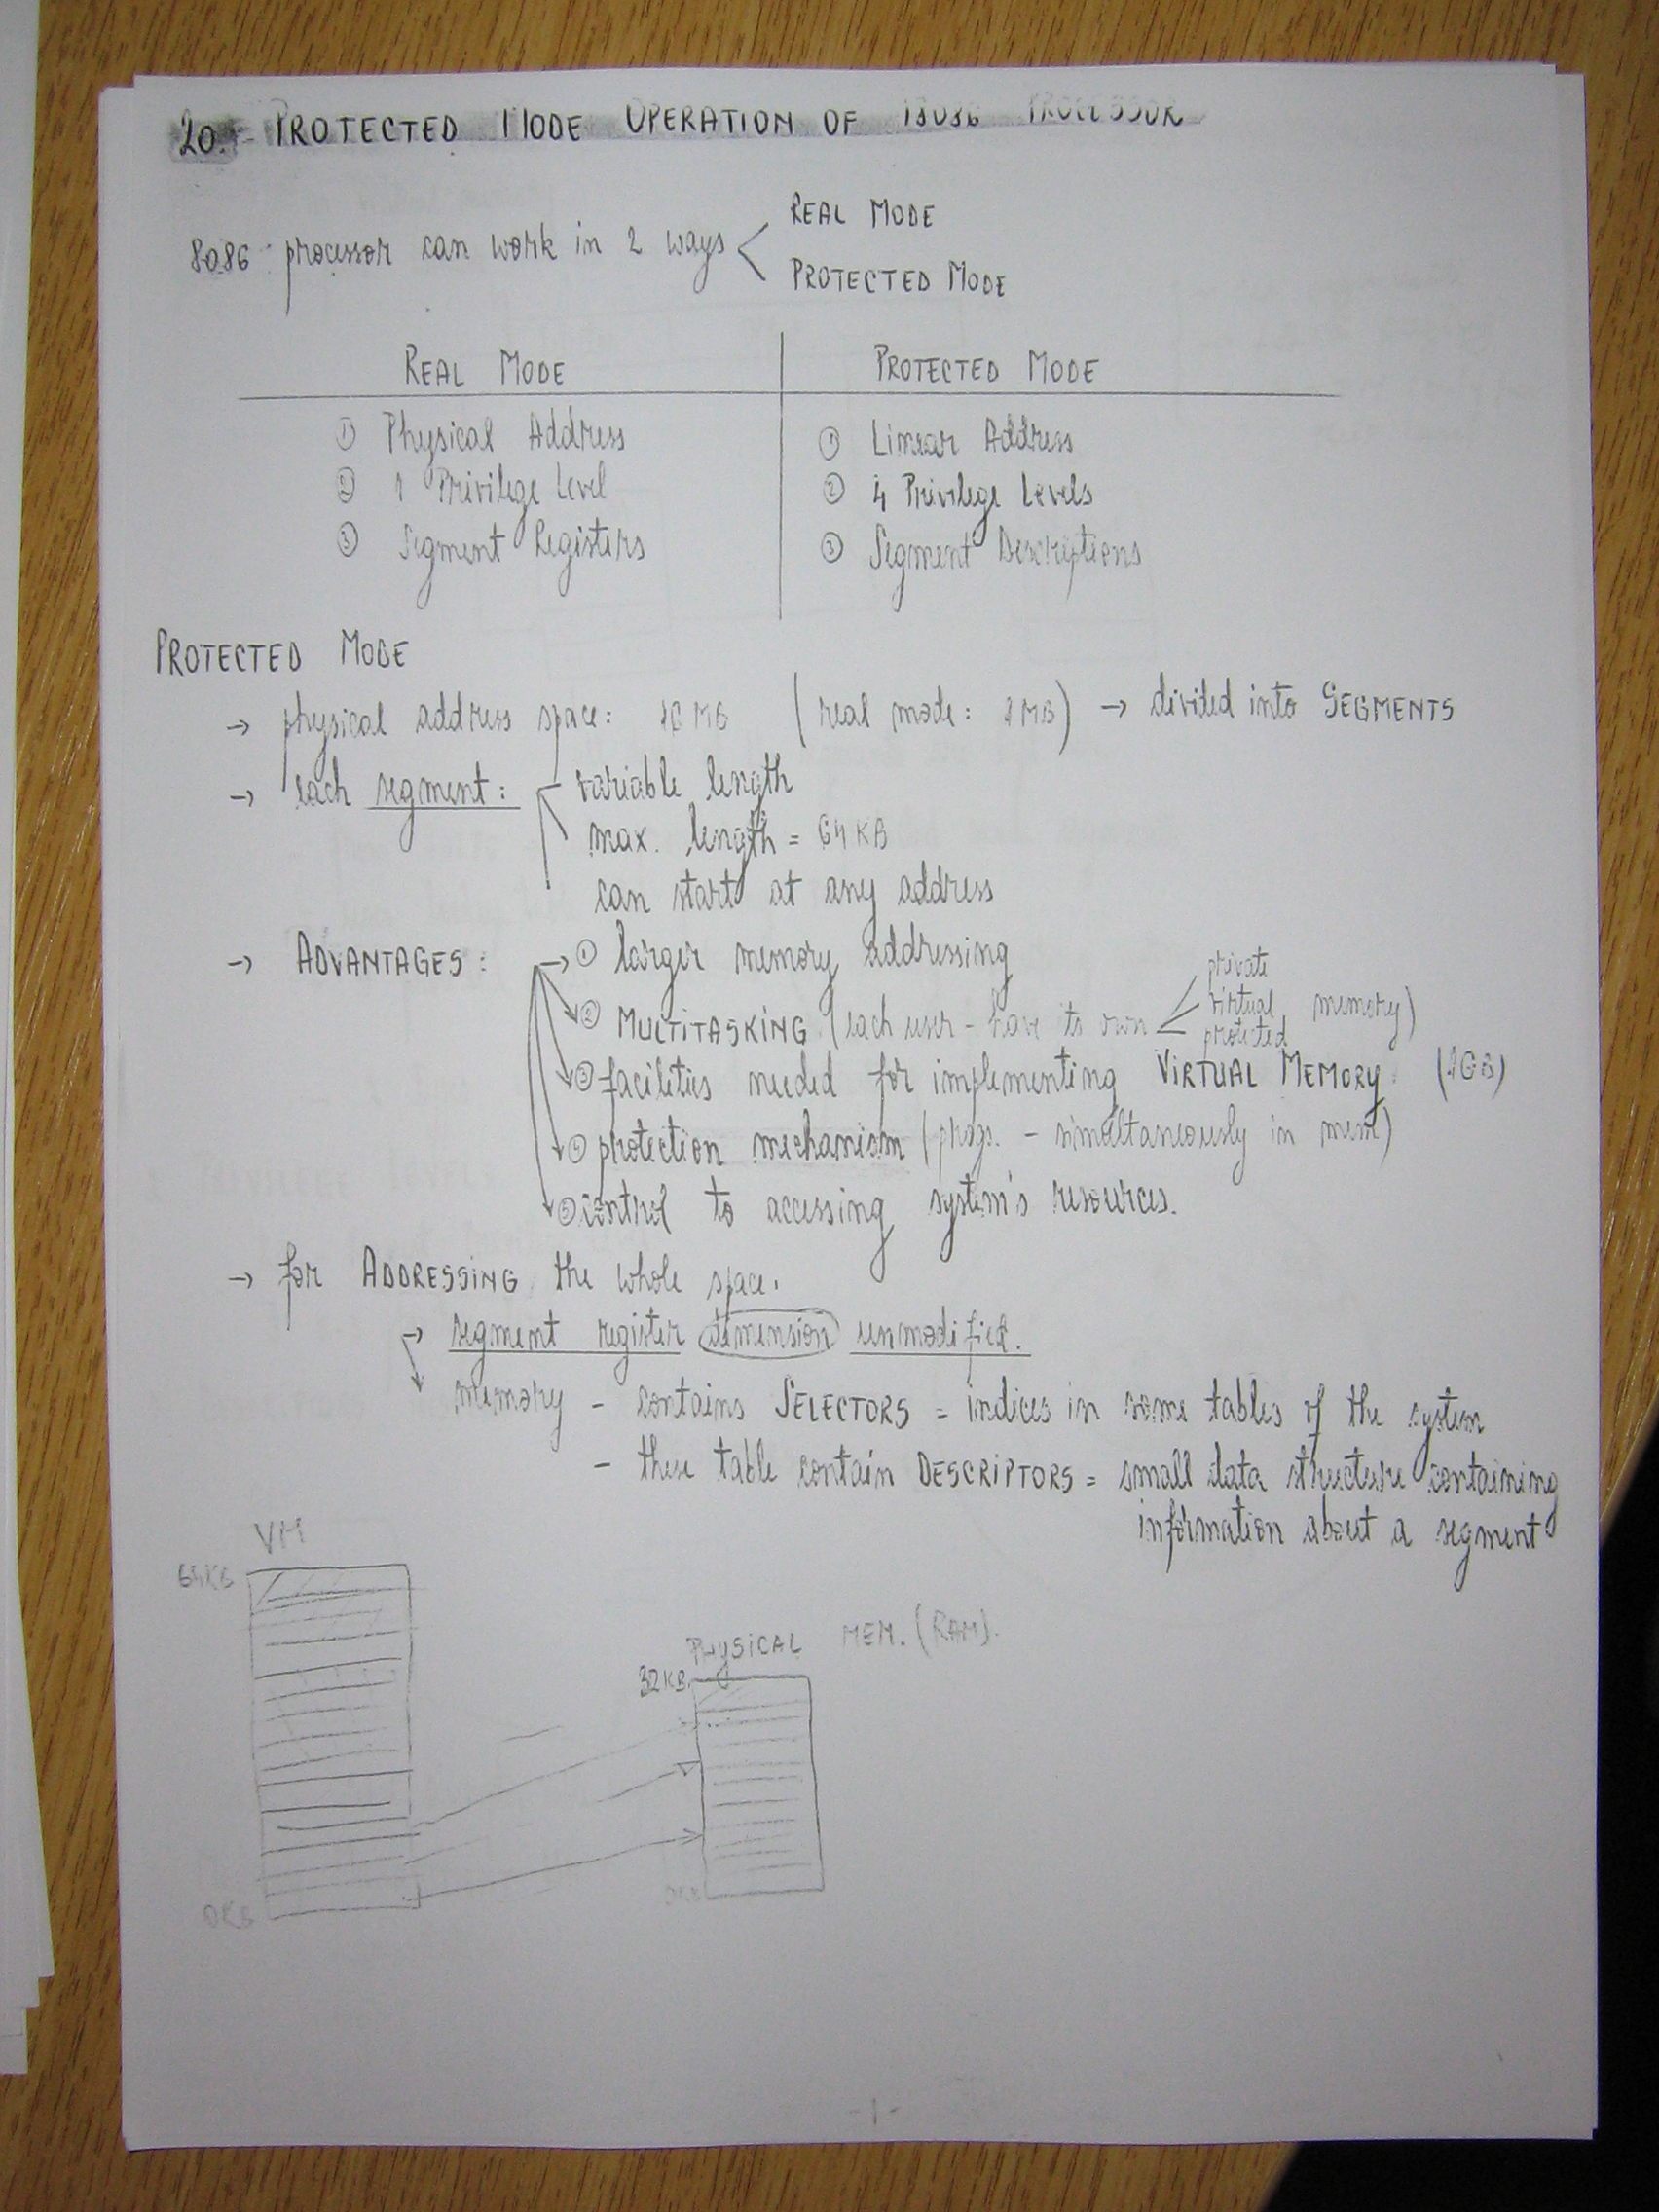 20. PROTECTED MODE OPERATION OF I8086 PROCESSOR
8086 processor can work in 2 ways
REAL MODE
PROTECTED MODE
REAL MODE
① Physical Address
② 1 Privilege Level
③ Segment Registers
PROTECTED MODE
① Linear Address
② 4 Privilege Levels
③ Segment Descriptions
PROTECTED MODE
→ physical address space: 16 MB (real mode: 1 MB) → divided into SEGMENTS
→ each segment: variable length
max. length = 64 KB
can start at any address
→ ADVANTAGES: → ① larger memory addressing
② MULTITASKING (each user - have its own private virtual protected memory)
③ facilities needed for implementing VIRTUAL MEMORY (1GB)
④ protection mechanism (progs. - simultaneously in mem)
⑤ control to accessing system's resources.
→ for ADDRESSING the whole space.
→ segment register dimension unmodified.
memory - contains SELECTORS = indices in some tables of the system
- these table contain DESCRIPTORS = small data structure containing
information about a segment
VM
64KB
0KB
PHYSICAL MEM. (RAM).
32KB
0KB
- 1 -